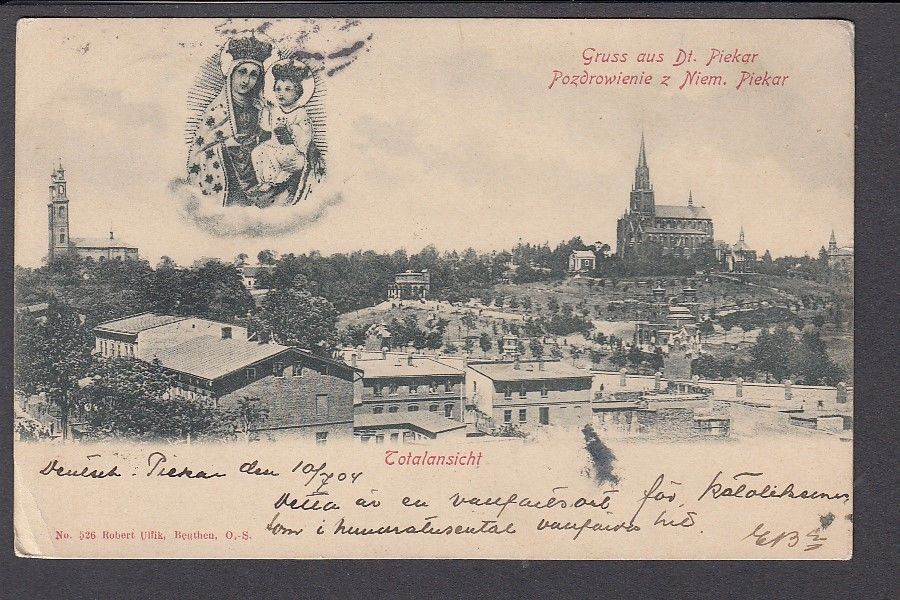 Gruss aus Dt. Piekar
Pozdrowienie z Niem. Piekar
Totalansicht
Deutsch. Piekar den 10/7 04
Detta är en vallfartsort för katolikerna
som i hundratusental vallfärda hit
No. 526 Robert Ullik, Beuthen, O.-S.